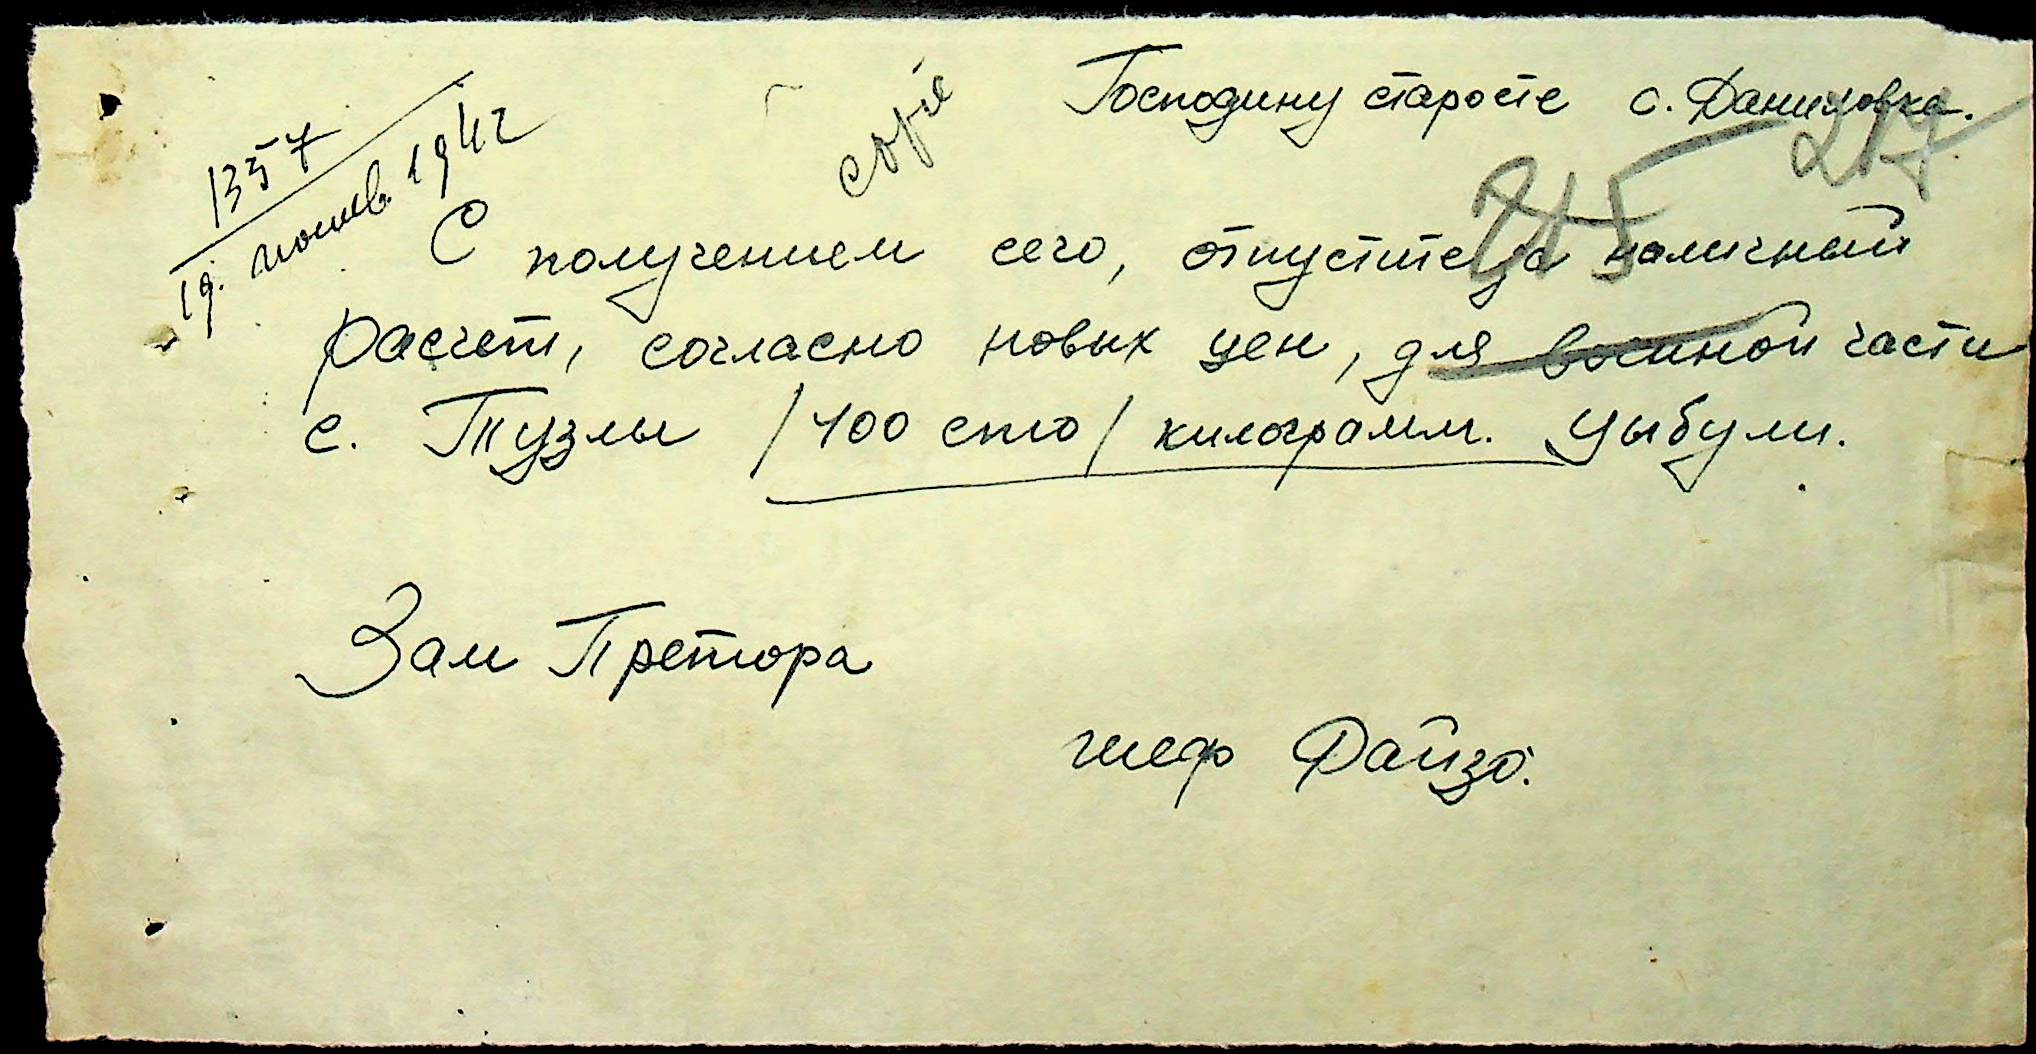 Господину старосте с. Даниловка.
copie
1357
19. ноемв. 1942
217
215
С получением сего, отпустите за наличный
расчет, согласно новых цен, для военной части
с. Тузлы /100 сто/ килограмм. Цыбули.
Зам Претора
шеф Файзо.